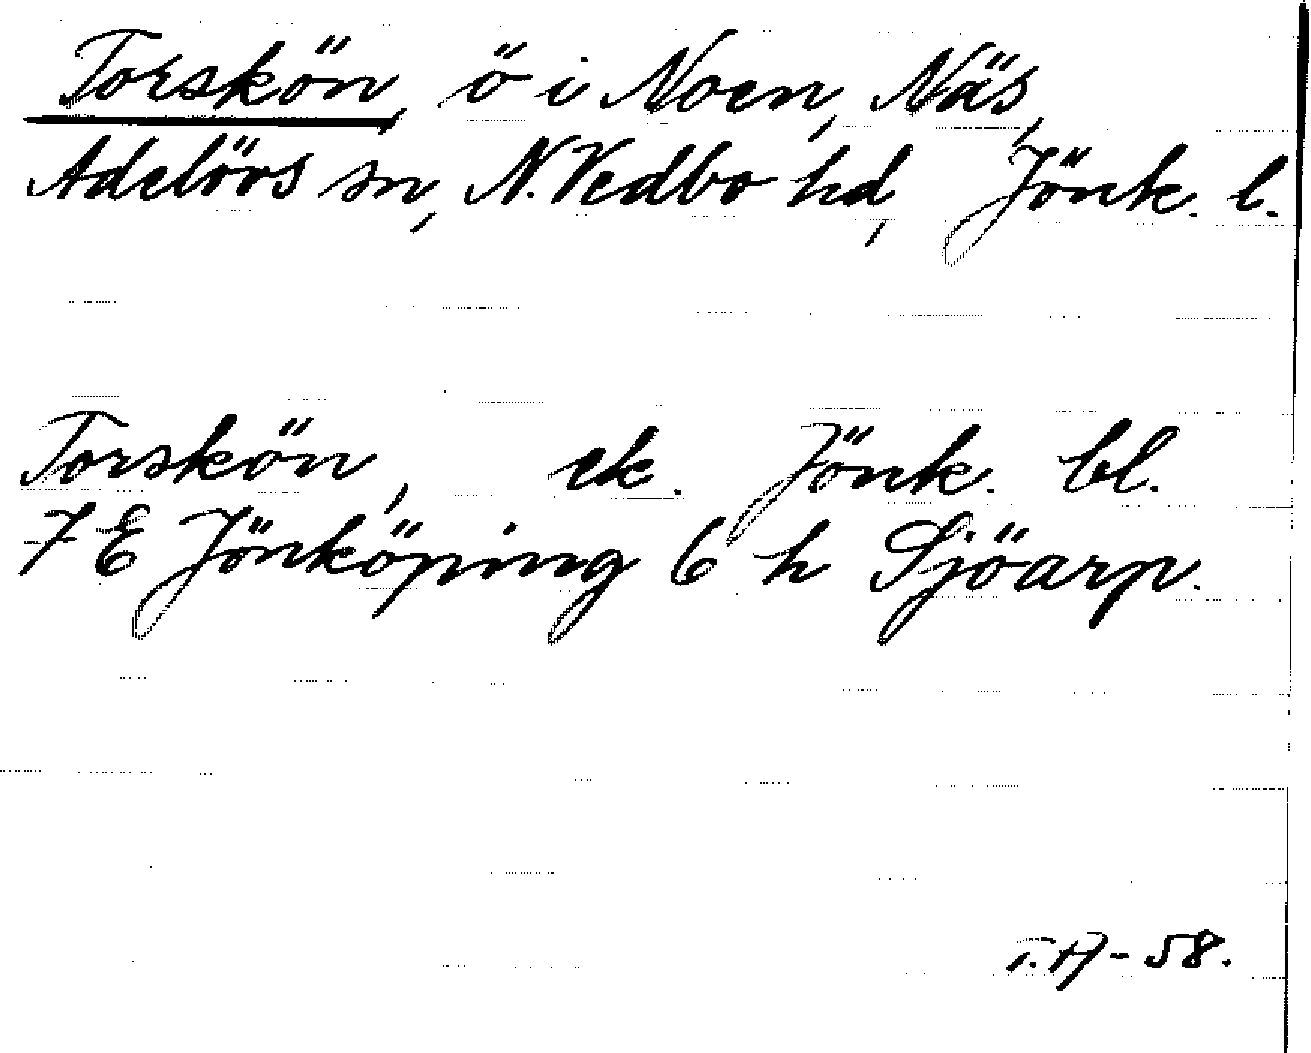 Torskön, ö i Noen, Näs,
Adelövs sn, N. Vedbo hd, Jönk. l.
Torskön, ek. Jönk. bl.
7 E Jönköping 6 h Sjöarp.
T.A-58.